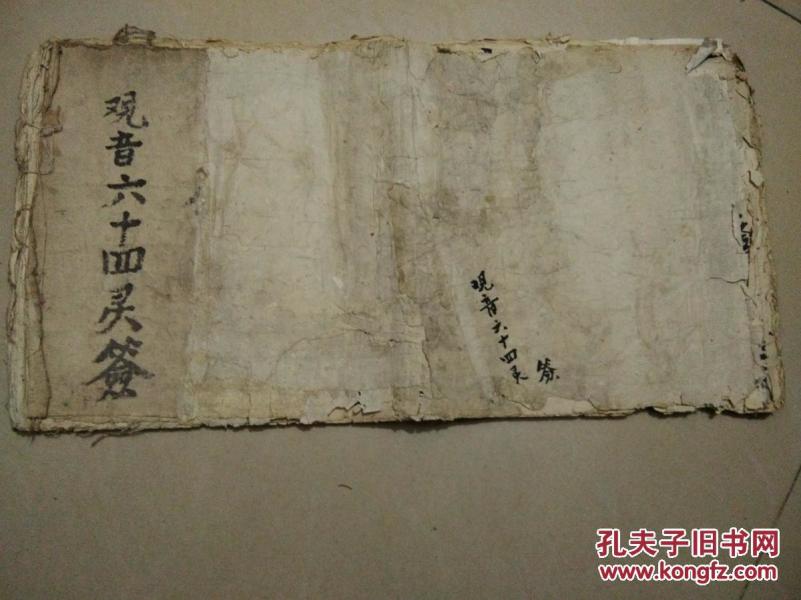 观音六十四灵簽
观音六十四灵簽
孔夫子旧书网
www.kongfz.com